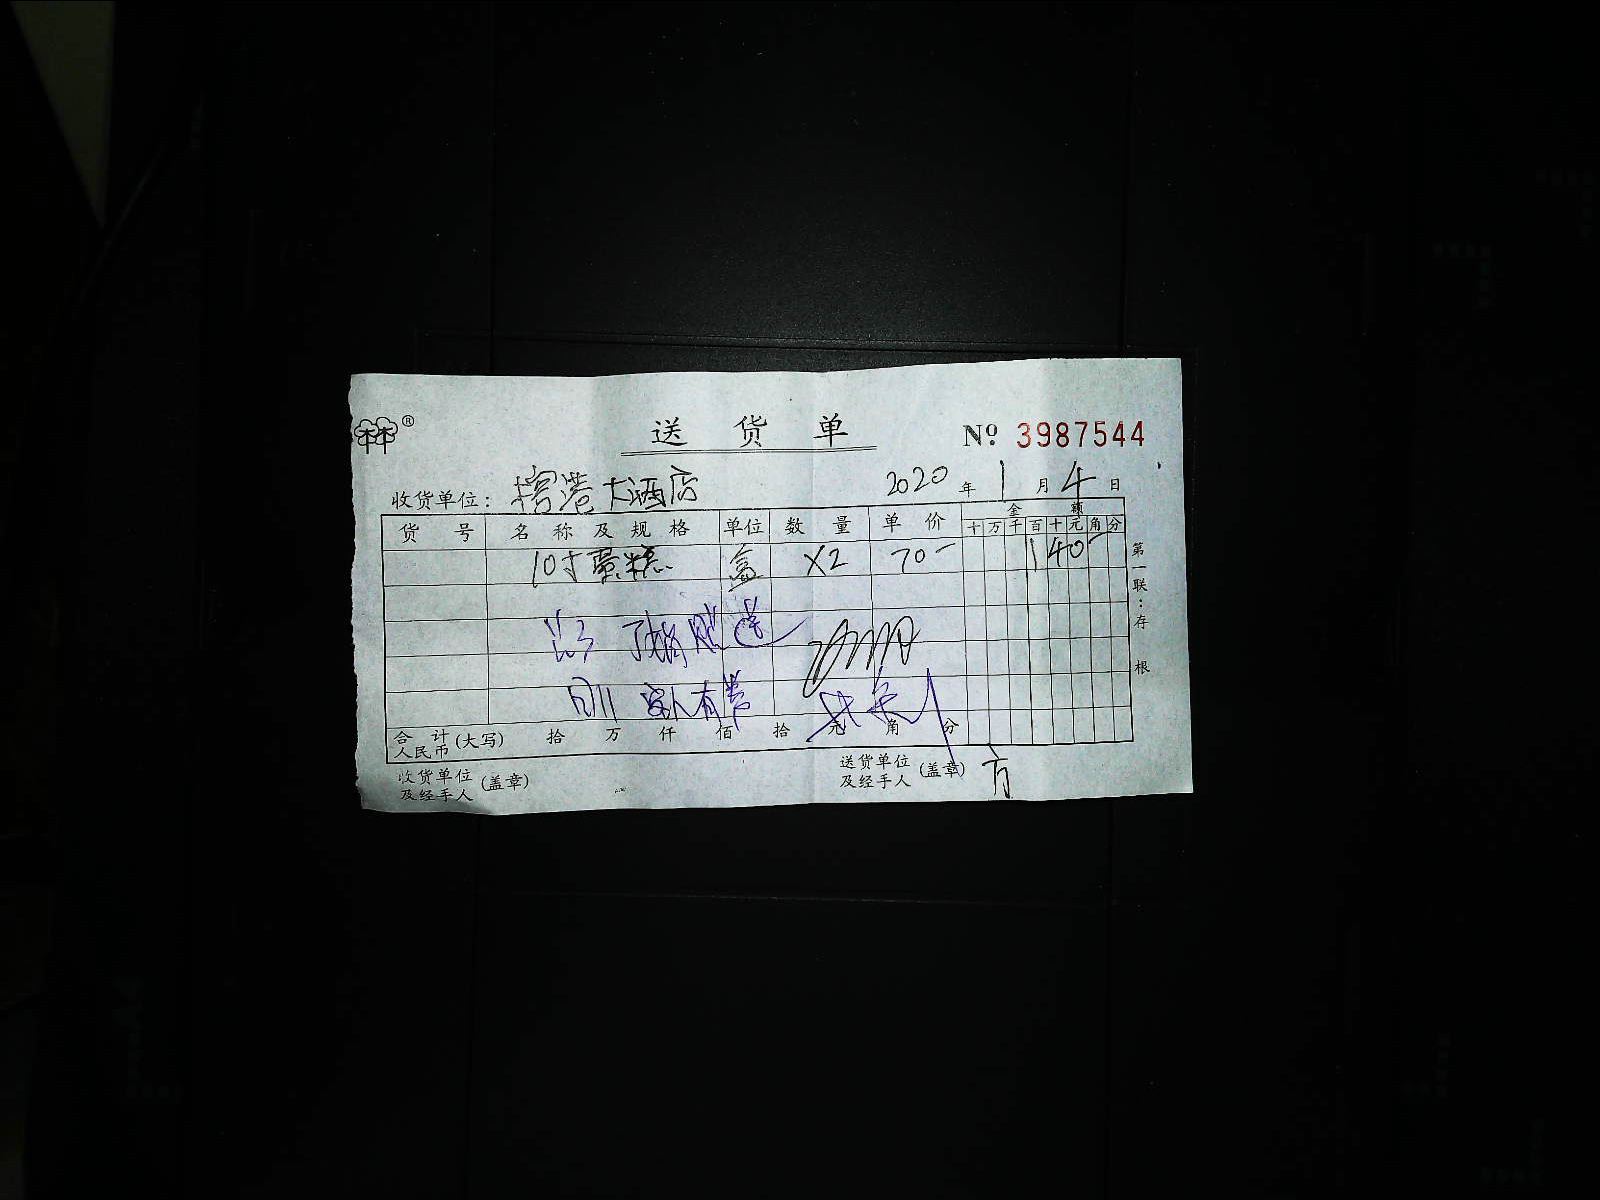 林®
送货单 № 3987544
收货单位: 榕港大酒店 2020年1月4日
货号 名称及规格 单位 数量 单价 金额
十万千百十元角分
10寸蛋糕 盒 X2 70- 140-
第一联:存根
合计人民币(大写) 拾 万 仟 佰 拾 元 角 分
收货单位及经手人(盖章) 送货单位及经手人(盖章) 方